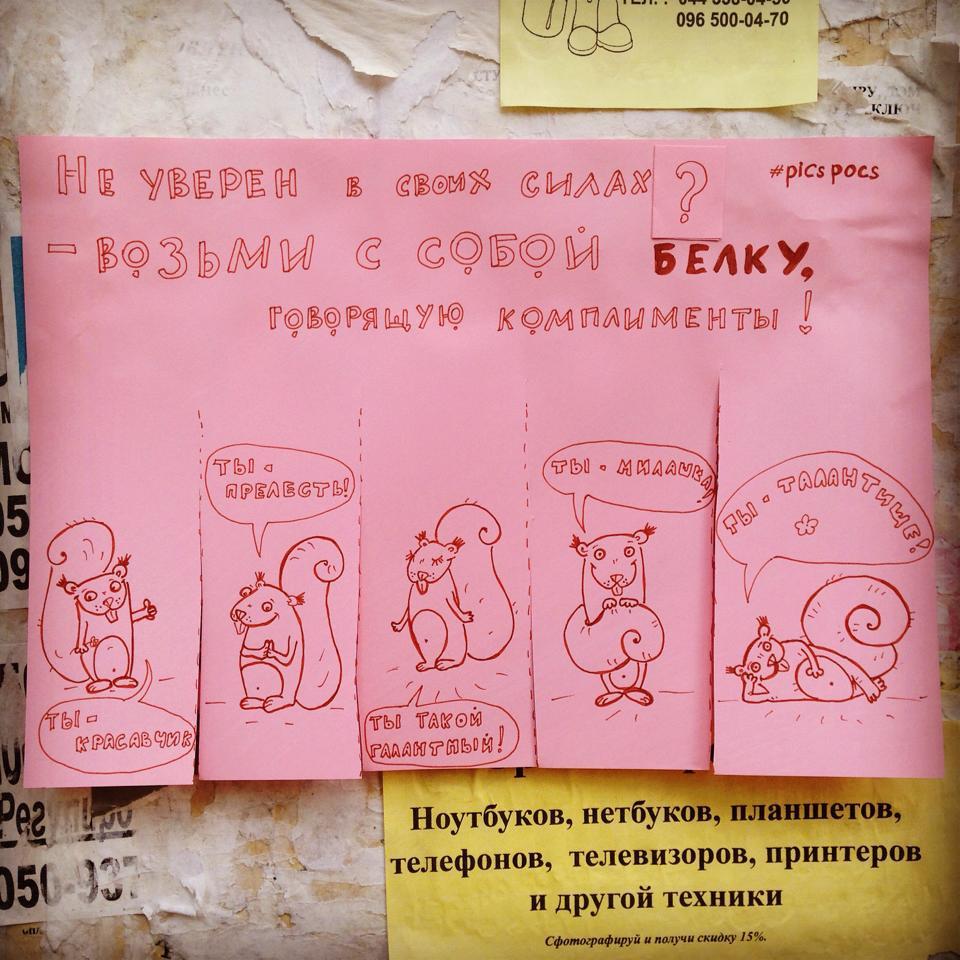 096 500-04-70
КЛЮЧ
Не уверен в своих силах?
#pics pocs
- возьми с собой БЕЛКУ,
говорящую комплименты!
Ты -
прелесть!
Ты - милашка!
Ты - талантище!
Ты -
красавчик
Ты такой
галантный!
Ноутбуков, нетбуков, планшетов,
телефонов, телевизоров, принтеров
и другой техники
Сфотографируй и получи скидку 15%.
050-937